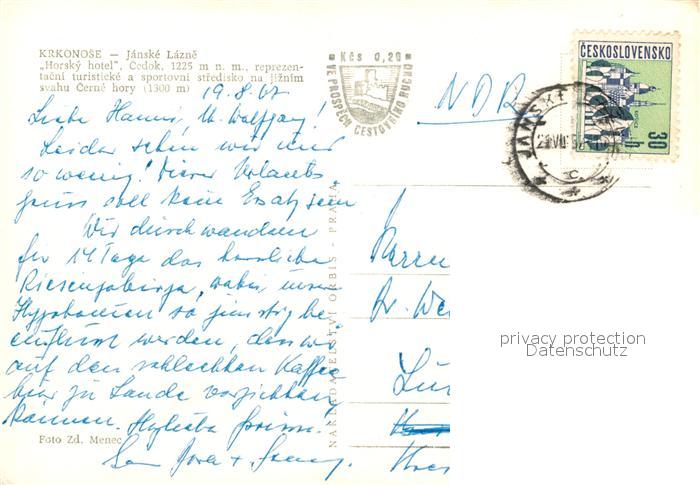 KRKONOŠE — Jánské Lázně
„Horský hotel", Čedok, 1225 m n. m., reprezen-
tační turistické a sportovní středisko na jižním
svahu Černé hory (1300 m)
19.8.67
Kčs 0,20
VE PROSPĚCH CESTOVNÍHO RUCHU
ČESKOSLOVENSKO
30 h
JÁNSKÉ
NDR
Liebe Hanni, u. Wolfgang!
Leider sehen wir uns
so wenig! Dieser Urlaubs
gruss soll kein Ersatz sein
Wir durchwandern
für 14 Tage das herrliche
Riesengebirge, wobei unsere
so günstig be
einflusst werden, dass wir
auf den schlechten Kaffee
hier zu Lande verzichten
können. Herzliche Grüsse.
NAKLADATELSTVÍ ORBIS - PRAHA
Dr. We
Foto Zd. Menec
privacy protection
Datenschutz